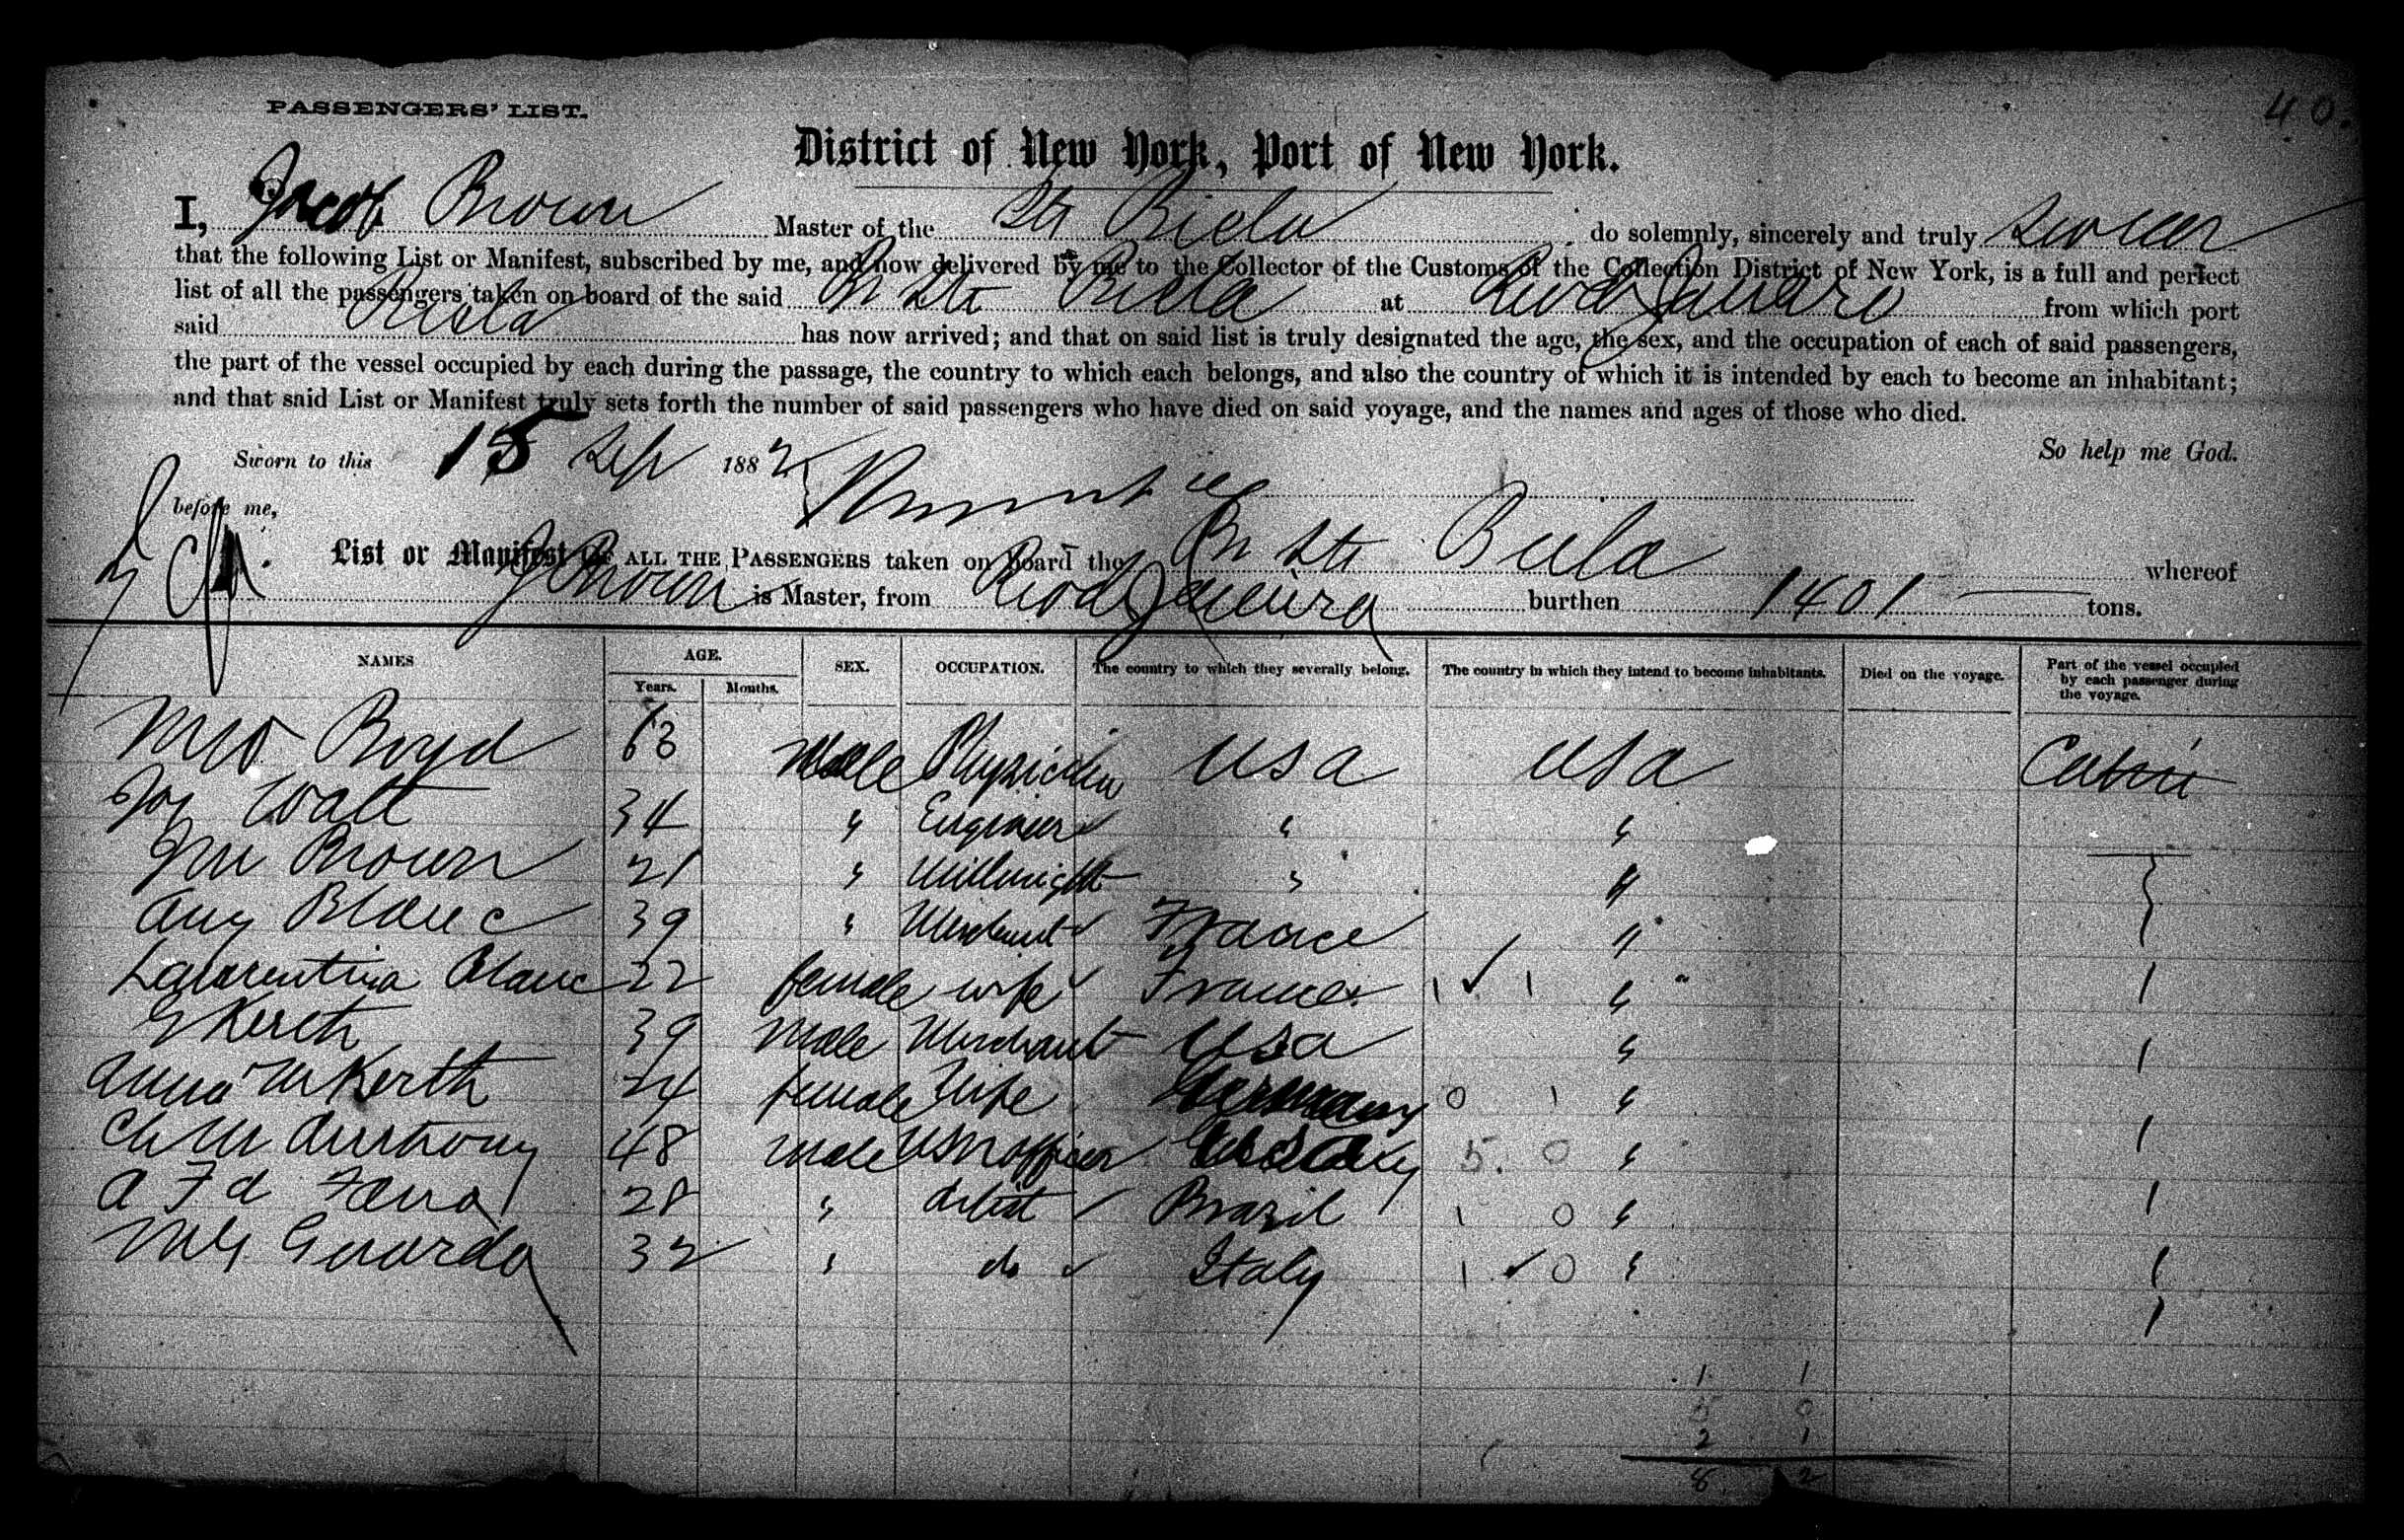 40.
PASSENGERS' LIST.
District of New York, Port of New York.
I, Jacob Brown Master of the Str Biela do solemnly, sincerely and truly swear
that the following List or Manifest, subscribed by me, and now delivered by me to the Collector of the Customs of the Collection District of New York, is a full and perfect
list of all the passengers taken on board of the said Br Str Biela at Rio de Janeiro from which port
said Biela has now arrived; and that on said list is truly designated the age, the sex, and the occupation of each of said passengers,
the part of the vessel occupied by each during the passage, the country to which each belongs, and also the country of which it is intended by each to become an inhabitant;
and that said List or Manifest truly sets forth the number of said passengers who have died on said voyage, and the names and ages of those who died.
So help me God.
Sworn to this 15 Sep 1882
before me,
List or Manifest OF ALL THE PASSENGERS taken on board the Br Str Biela whereof
J Brown is Master, from Rio de Janeiro burthen 1401 tons.
NAMES AGE. Years. Months. SEX. OCCUPATION. The country to which they severally belong. The country in which they intend to become inhabitants. Died on the voyage. Part of the vessel occupied by each passenger during the voyage.
Boyd 63 Male Physician USA USA Cabin
Jos Watt 34 " Engineer " "
Brown 21 " Millwright " "
Aug Blanc 39 " Merchant France "
Laurentina Blanc 22 female wife France 1 1 "
G Kerth 39 Male Merchant USA "
Anna M Kerth 24 female Wife Germany 0 1 "
Ch M Anthony 48 male USN officer USA 5. 0 "
A F d 28 " Artist Brazil 1 0 "
32 " do Italy 1 0 "
1 1
5 0
2 1
8 2